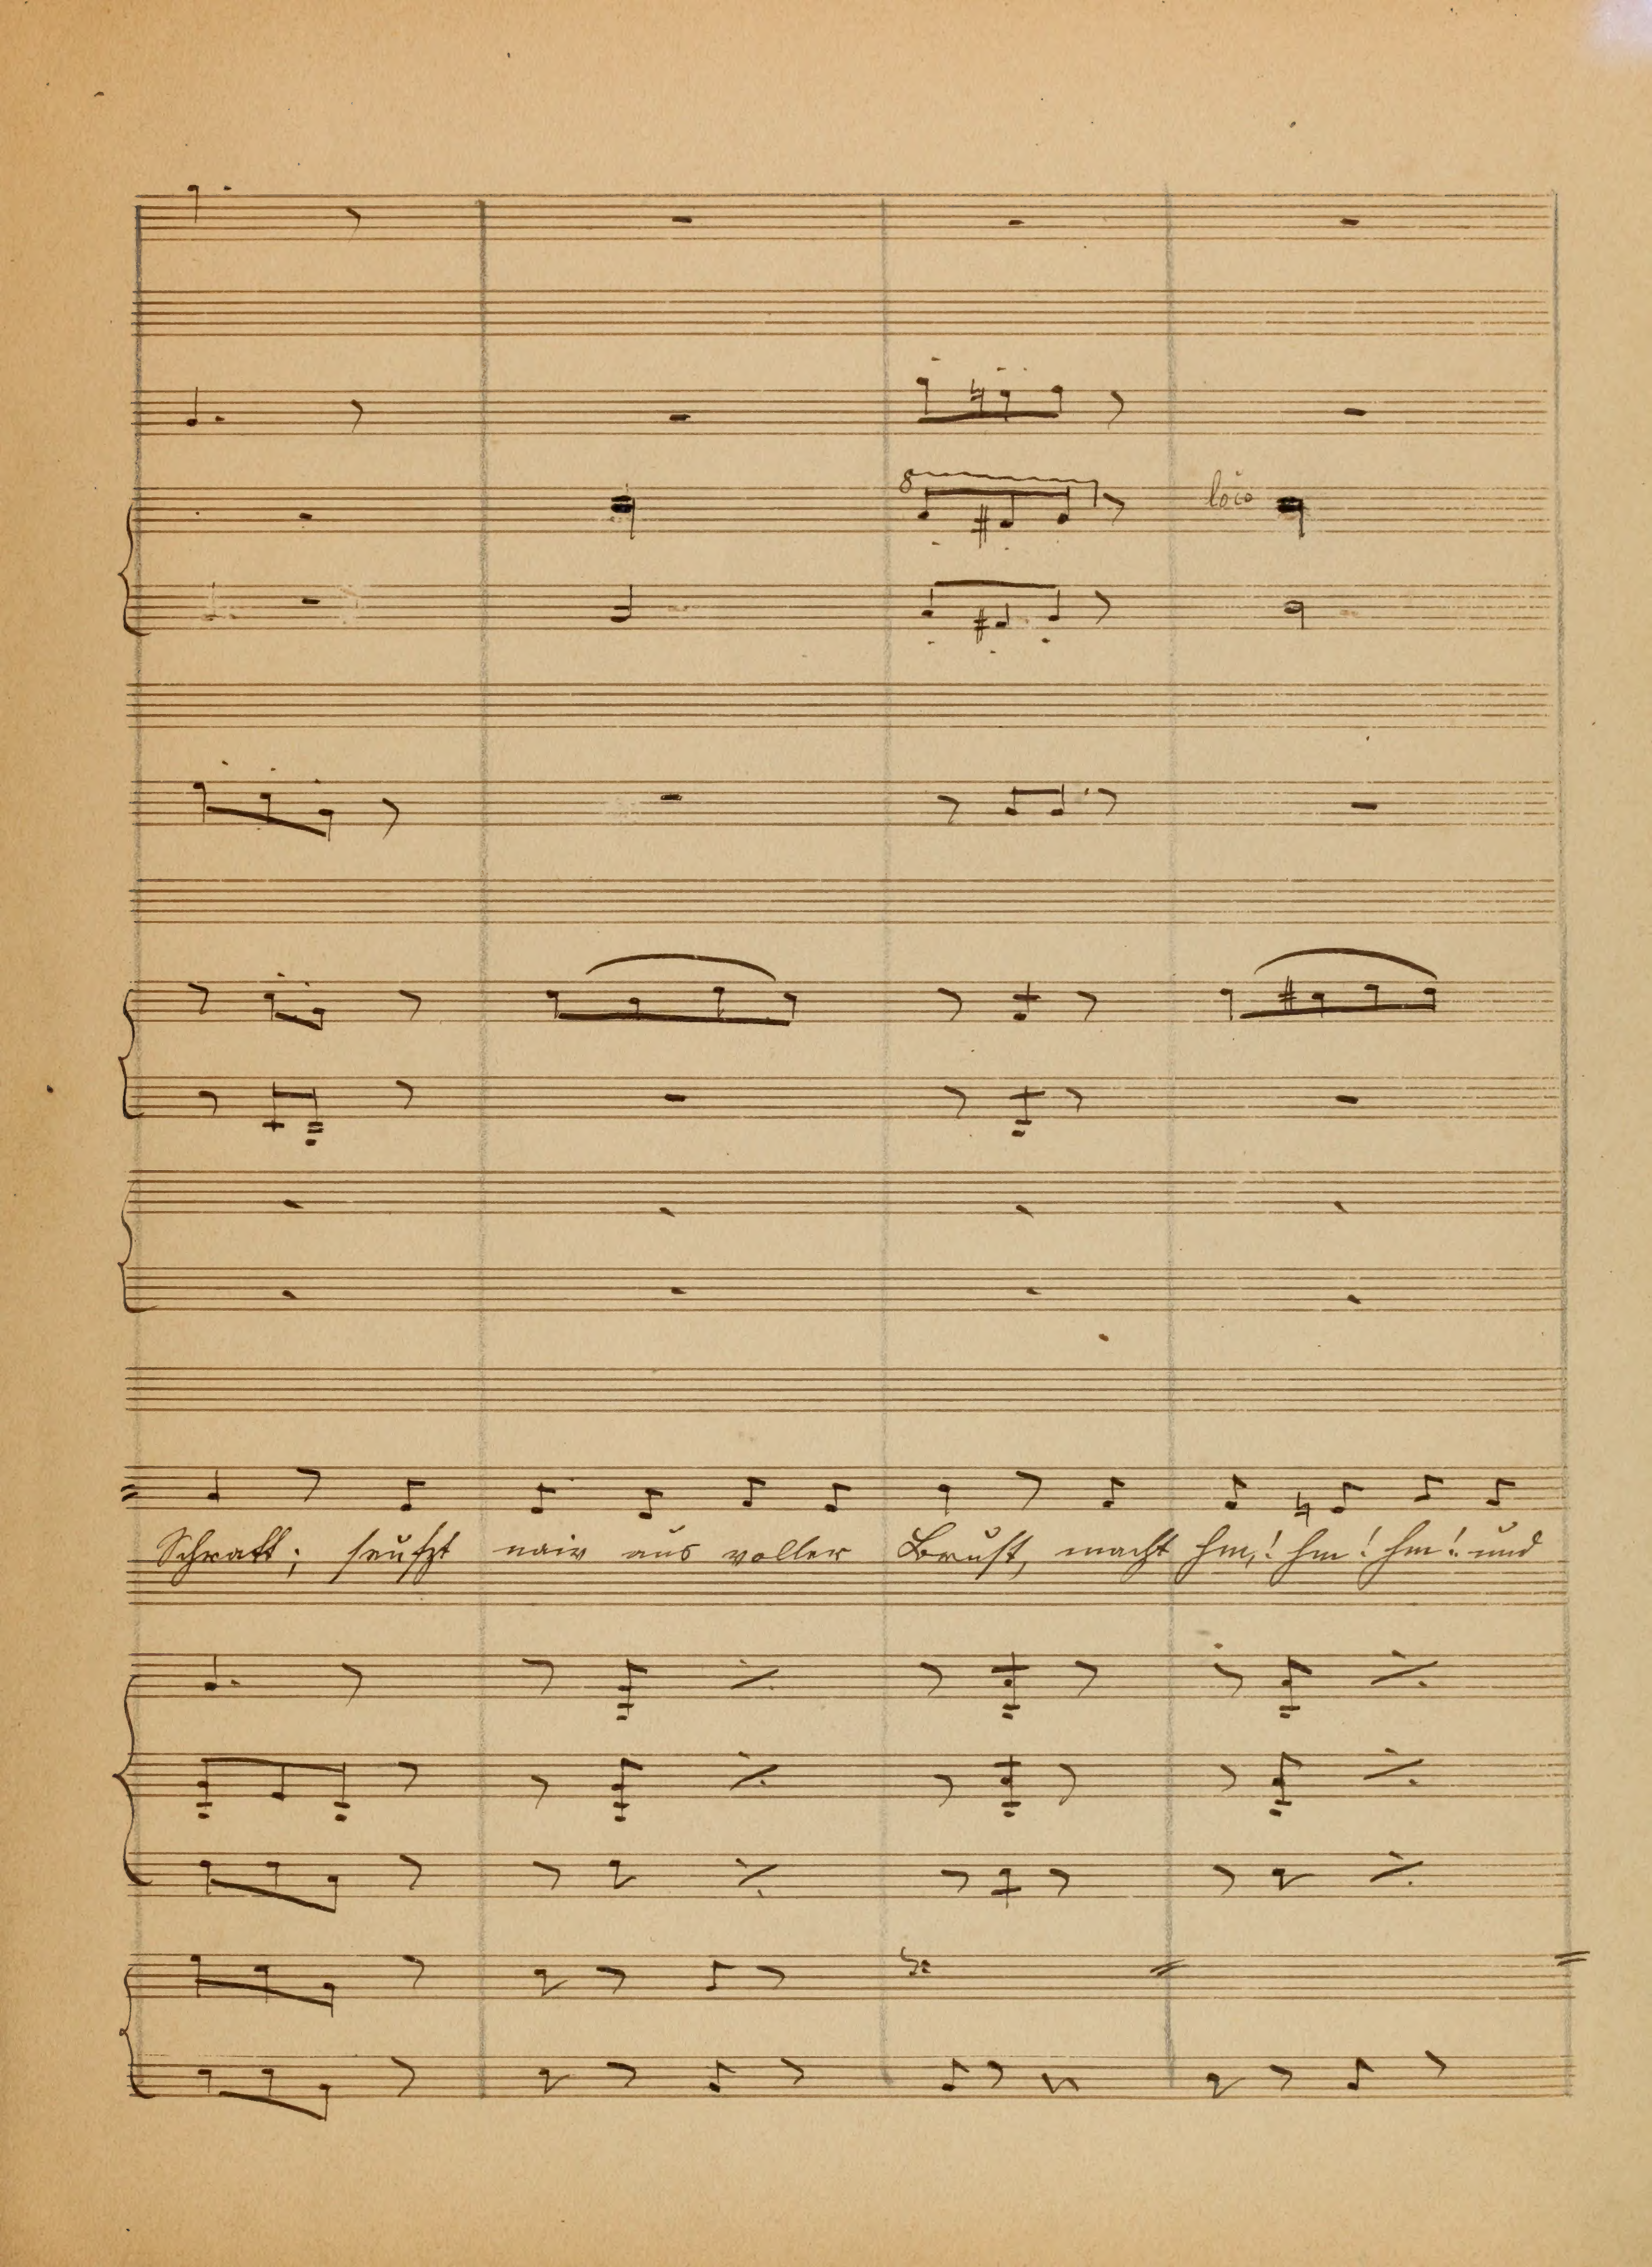 8
loco
Schratt; seufzt naiv aus voller Brust, macht hm,! hm! hm! und